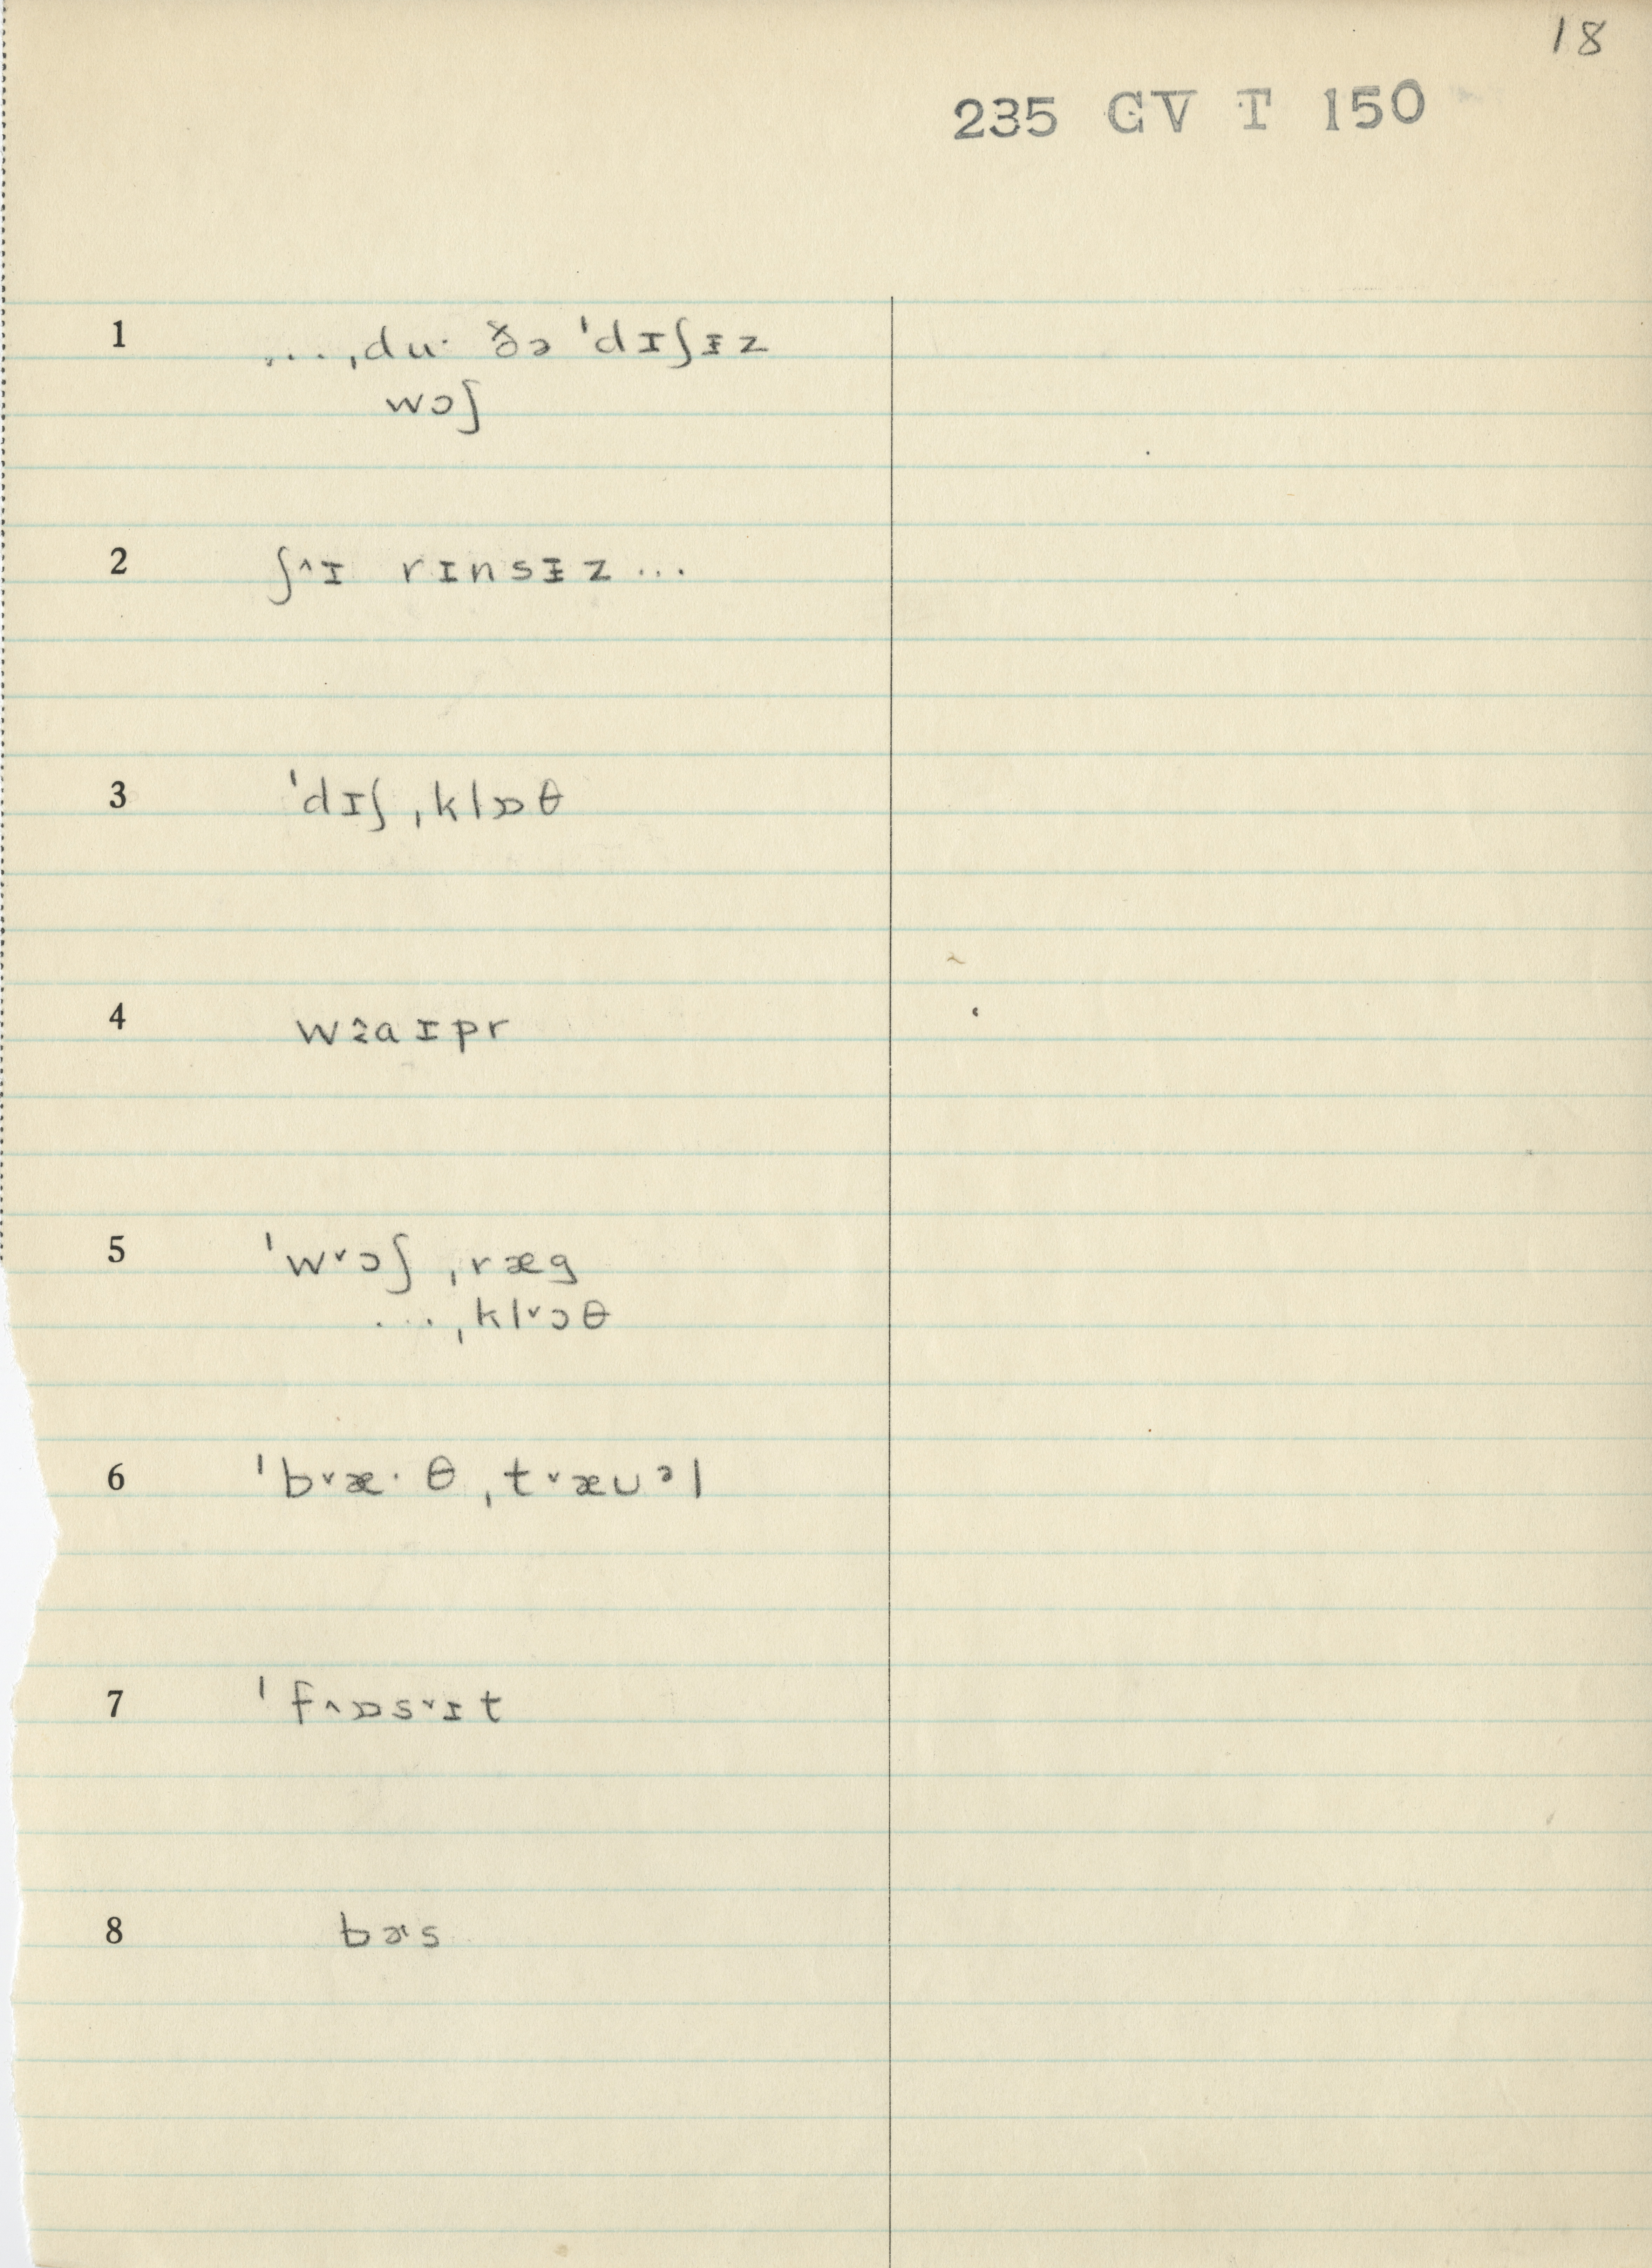 18
235 GV T 150
1 ...ˌdu· ðə ˈdɪʃɪ̵z
wɔʃ
2 ʃ^ɪ rɪnsɪ̵z...
3 ˈdɪʃˌklɒθ
4 w꞉aɪpr
5 ˈw˅ɔʃˌræg
...ˌkl˅ɔθ
6 ˈb˅æ·θˌt˅æuᵊl
7 ˈf^ɒs˅ɪt
8